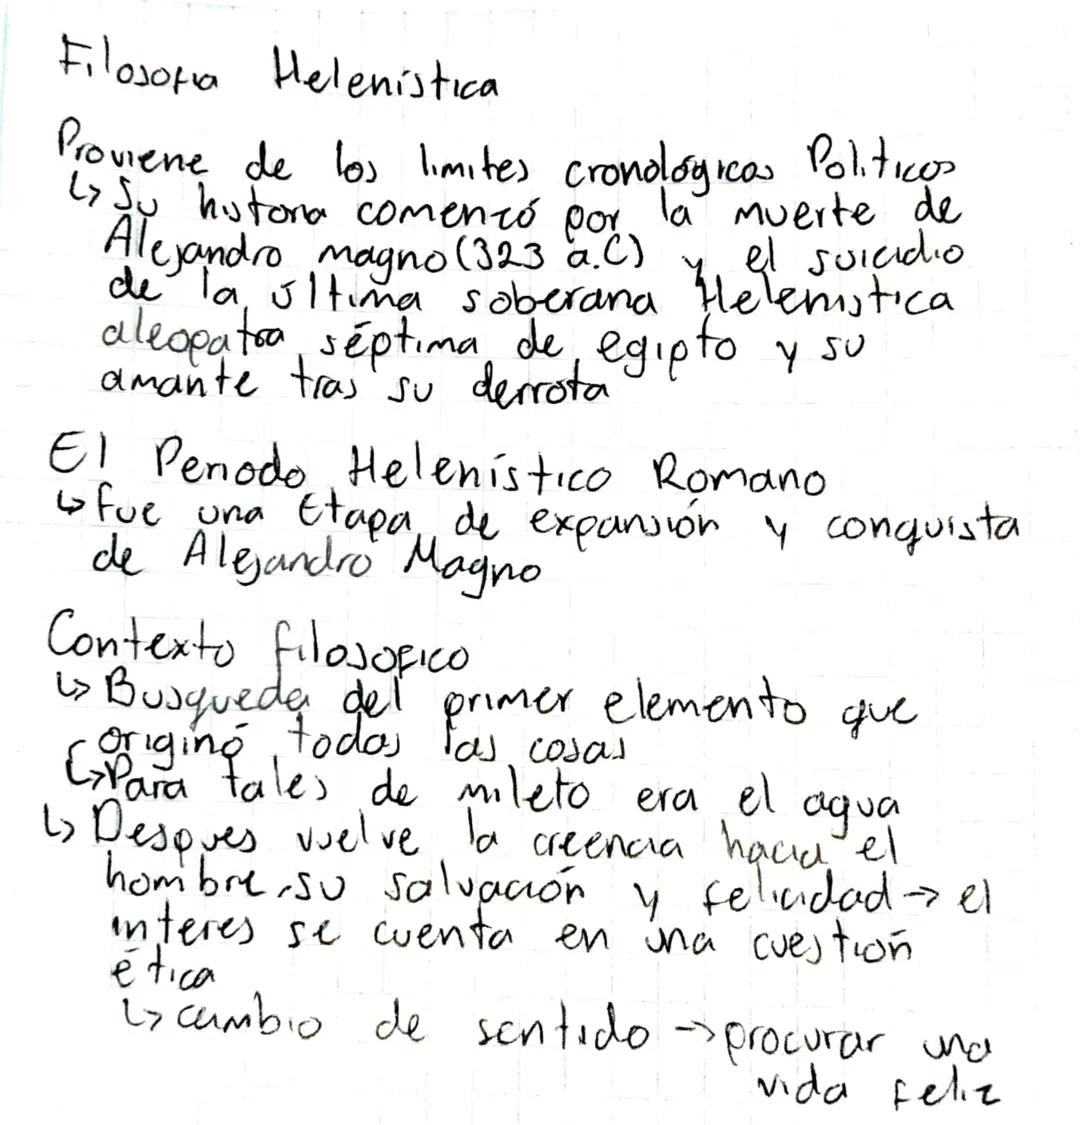 Filosofia Helenística
Proviene de los limites cronológicos Politicos
↳ Su historia comenzó por la muerte de
Alejandro magno (323 a.C) y el suicidio
de la última soberana Helenistica
cleopatra séptima de egipto y su
amante tras su derrota
El Periodo Helenístico Romano
↳ fue una Etapa de expansión y conquista
de Alejandro Magno
Contexto filosofico
↳ Busqueda del primer elemento que
originó todas las cosas
↳ Para tales de mileto era el agua
↳ Despues vuelve la creencia hacia el
hombre, su salvación y felicidad → el
interes se cuenta en una cuestión
ética
↳ cambio de sentido → procurar una
vida feliz